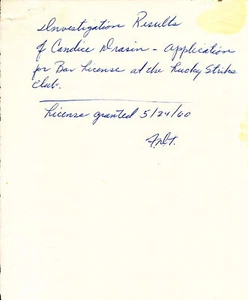 Investigation Results
of Candice Drasin - Application
for Bar License at the Lucky Strike
Club.
License granted 5/24/60